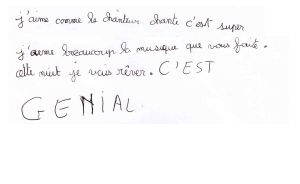 j'aime comme le chanteur chante c'est super
j'aieme beaucoup la musique que vous faite.
cette nuit je vais rêver. C'EST
GENIAL